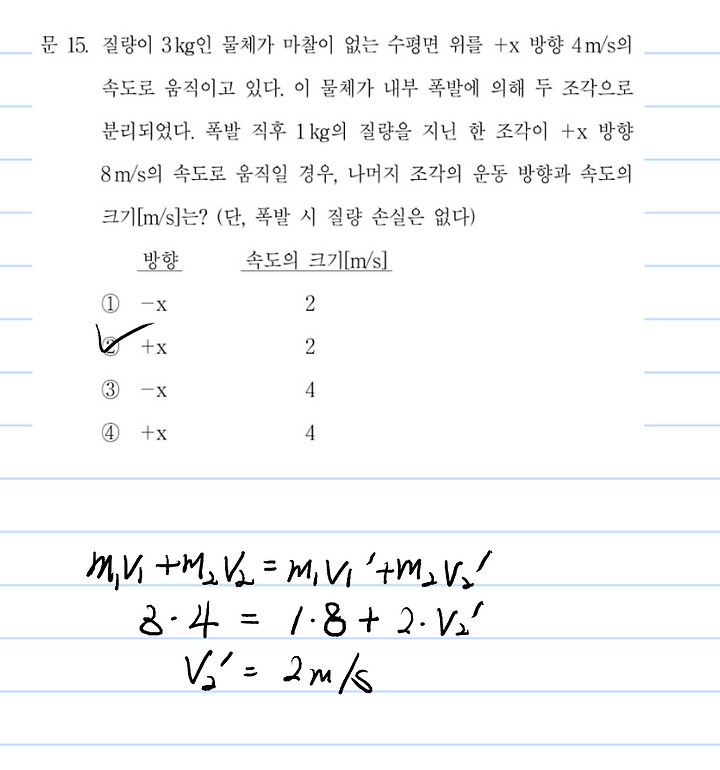 문 15. 질량이 3kg인 물체가 마찰이 없는 수평면 위를 +x 방향 4m/s의
속도로 움직이고 있다. 이 물체가 내부 폭발에 의해 두 조각으로
분리되었다. 폭발 직후 1kg의 질량을 지닌 한 조각이 +x 방향
8m/s의 속도로 움직일 경우, 나머지 조각의 운동 방향과 속도의
크기[m/s]는? (단, 폭발 시 질량 손실은 없다)
방향 속도의 크기[m/s]
① −x 2
② +x 2
③ −x 4
④ +x 4
m₁v₁+m₂v₂=m₁v₁'+m₂v₂'
3·4 = 1·8+2·v₂'
v₂' = 2m/s